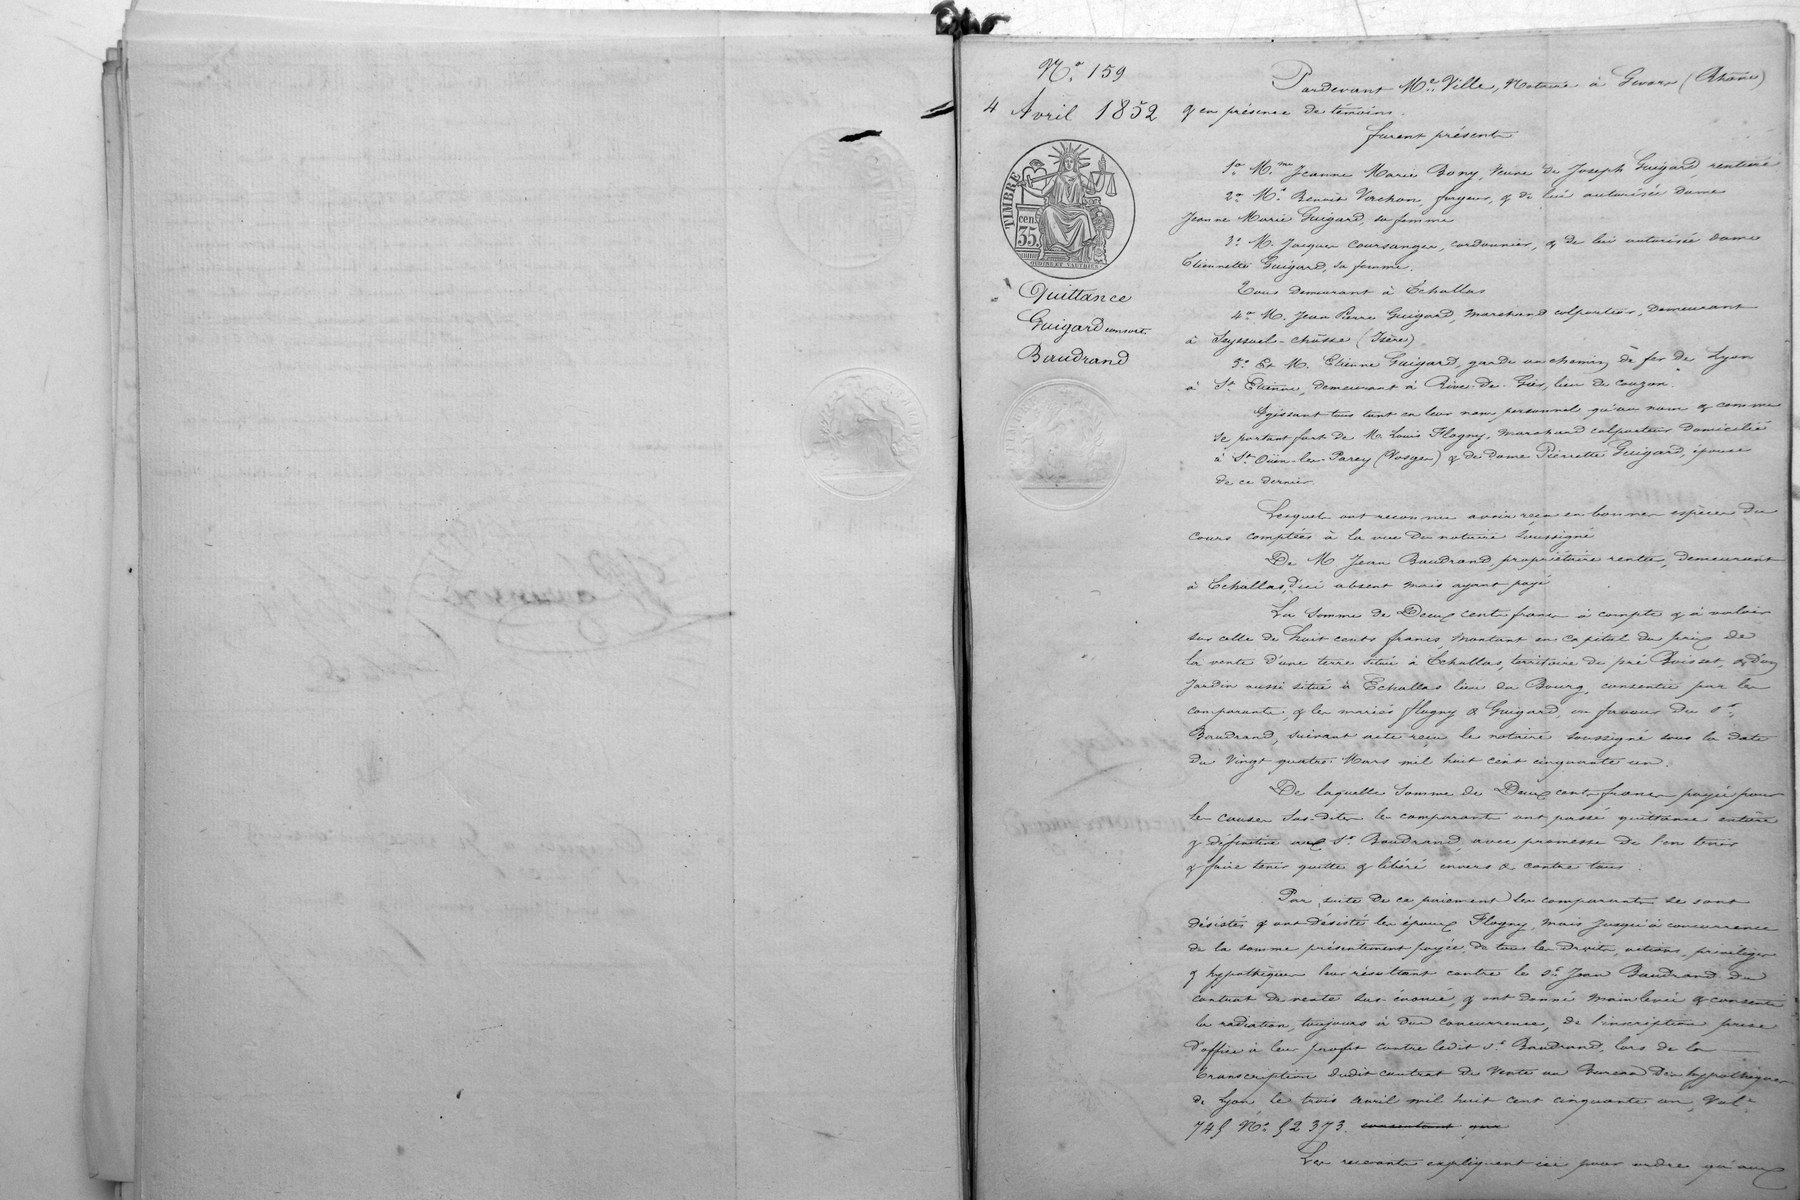 N.º 159
4 Avril 1852
TIMBRE
cen.
35.
Quittance
Guigard consort.
Baudrand
Pardevant Mᵉ Ville, Notaire à Givors (Rhône)
& en présence de témoins.
furent présents
1º Mme Jeanne Marie Bony, Veuve de Joseph Guigard, rentière
2º Mr Benoit Verchon, forgeur, & de lui autorisée dame
Jeanne Marie Guigard, sa femme
3º M. Jacques Coursanger, cordonnier, & de lui autorisée dame
Etiennette Guigard, sa femme.
Tous demeurant à Echallas
4º M. Jean Pierre Guigard, marchand colporteur, demeurant
à Seyssuel-Chasse (Isère)
5º Et M. Etienne Guigard, garde au chemin de fer de Lyon
à St Etienne, demeurant à Rive-de-Gier, lieu de Couzon.
Agissant tous tant en leur nom personnel qu'au nom & comme
se portant fort de M. Louis Flagny, marchand colporteur domicilié
à St Oüen-les-Parey (Vosges) & de dame Pierrette Guigard, épouse
de ce dernier.
Lesquels ont reconnu avoir reçu en bonnes espèces du
cours comptées à la vue du notaire soussigné
De M Jean Baudrand, propriétaire rentier, demeurant
à Echallas, d'ici absent mais ayant payé
La somme de Deux cents francs à compte & à valoir
sur celle de huit cents francs, montant en capital du prix de
la vente d'une terre située à Echallas, territoire de pré Boisset, & d'un
Jardin aussi situé à Echallas lieu du Bourg, consentie par les
comparants, & les mariés Flagny & Guigard, en faveur du sr
Baudrand, suivant acte reçu le notaire soussigné sous la date
du Vingt quatre Mars mil huit cent cinquante un.
De laquelle somme de Deux cents francs payée pour
les causes sus-dites les comparants ont passé quittance entière
& définitive au Sr Baudrand, avec promesse de l'en tenir
& faire tenir quitte & libéré envers & contre tous.
Par suite de ce paiement les comparants se sont
désistés & ont désisté les époux Flagny, mais jusqu'à concurrence
de la somme présentement payée, de tous les droits, actions, privilèges
& hypothèques leur résultant contre le Sr Jean Baudrand du
contrat de vente sus-énoncé, & ont donné main levée & consenti
la radiation, toujours à due concurrence, de l'inscription prise
d'office à leur profit contre ledit sr Baudrand, lors de la
transcription dudit contrat de vente au Bureau des hypothèques
de Lyon le trois avril mil huit cent cinquante un, Vol.
745 Nº 52373. consentant que
Les recevants expliquent ici pour ordre qu'aux